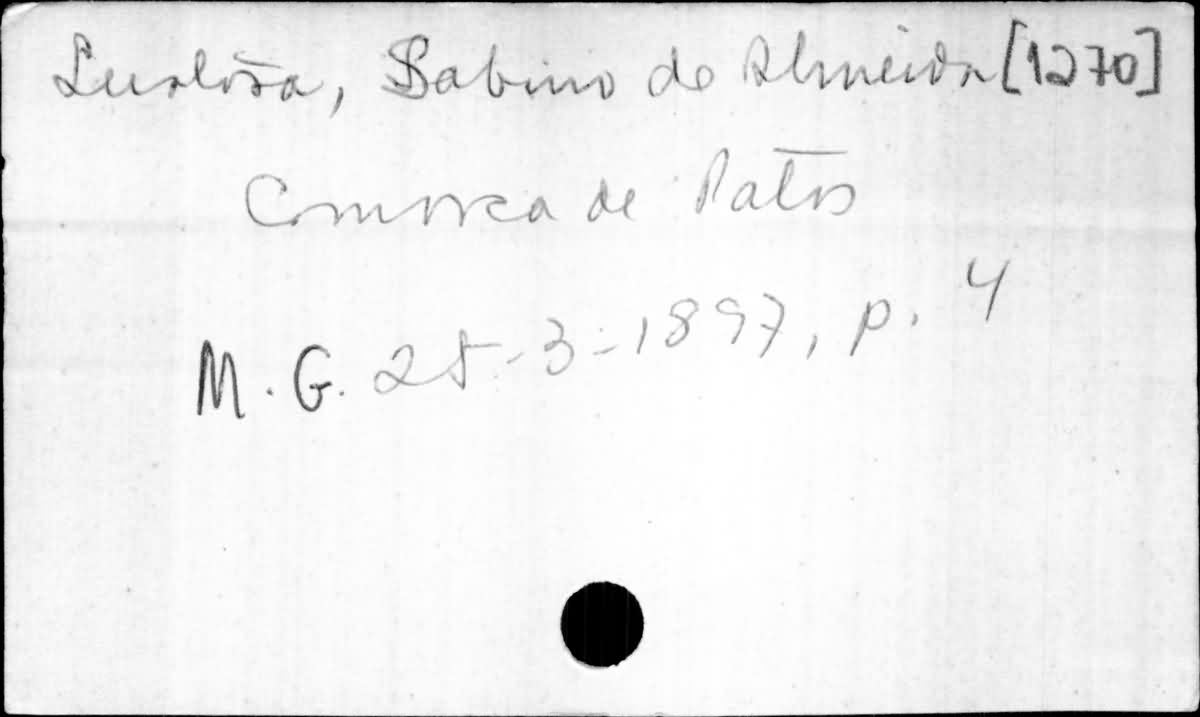 Lustosa, Sabino de Almeida [1270]
Comarca de Patos
M. G. 25-3-1897, p. 4